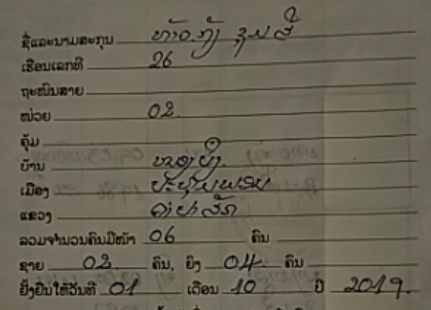 ຊື່ແລະນາມສະກຸນ ທ້າວ ກັງ ຊຸມສີ
ເຮືອນເລກທີ 26
ຖະໜົນສາຍ
ໜ່ວຍ 02
ຄຸ້ມ
ບ້ານ
ເມືອງ ປະທຸມພອນ
ແຂວງ ຈຳປາສັກ
ລວມຈຳນວນຄົນມີໜ້າ 06 ຄົນ
ຊາຍ 02 ຄົນ, ຍິງ 04 ຄົນ
ຢັ້ງຢືນໃຫ້ວັນທີ 01 ເດືອນ 10 ປີ 2019